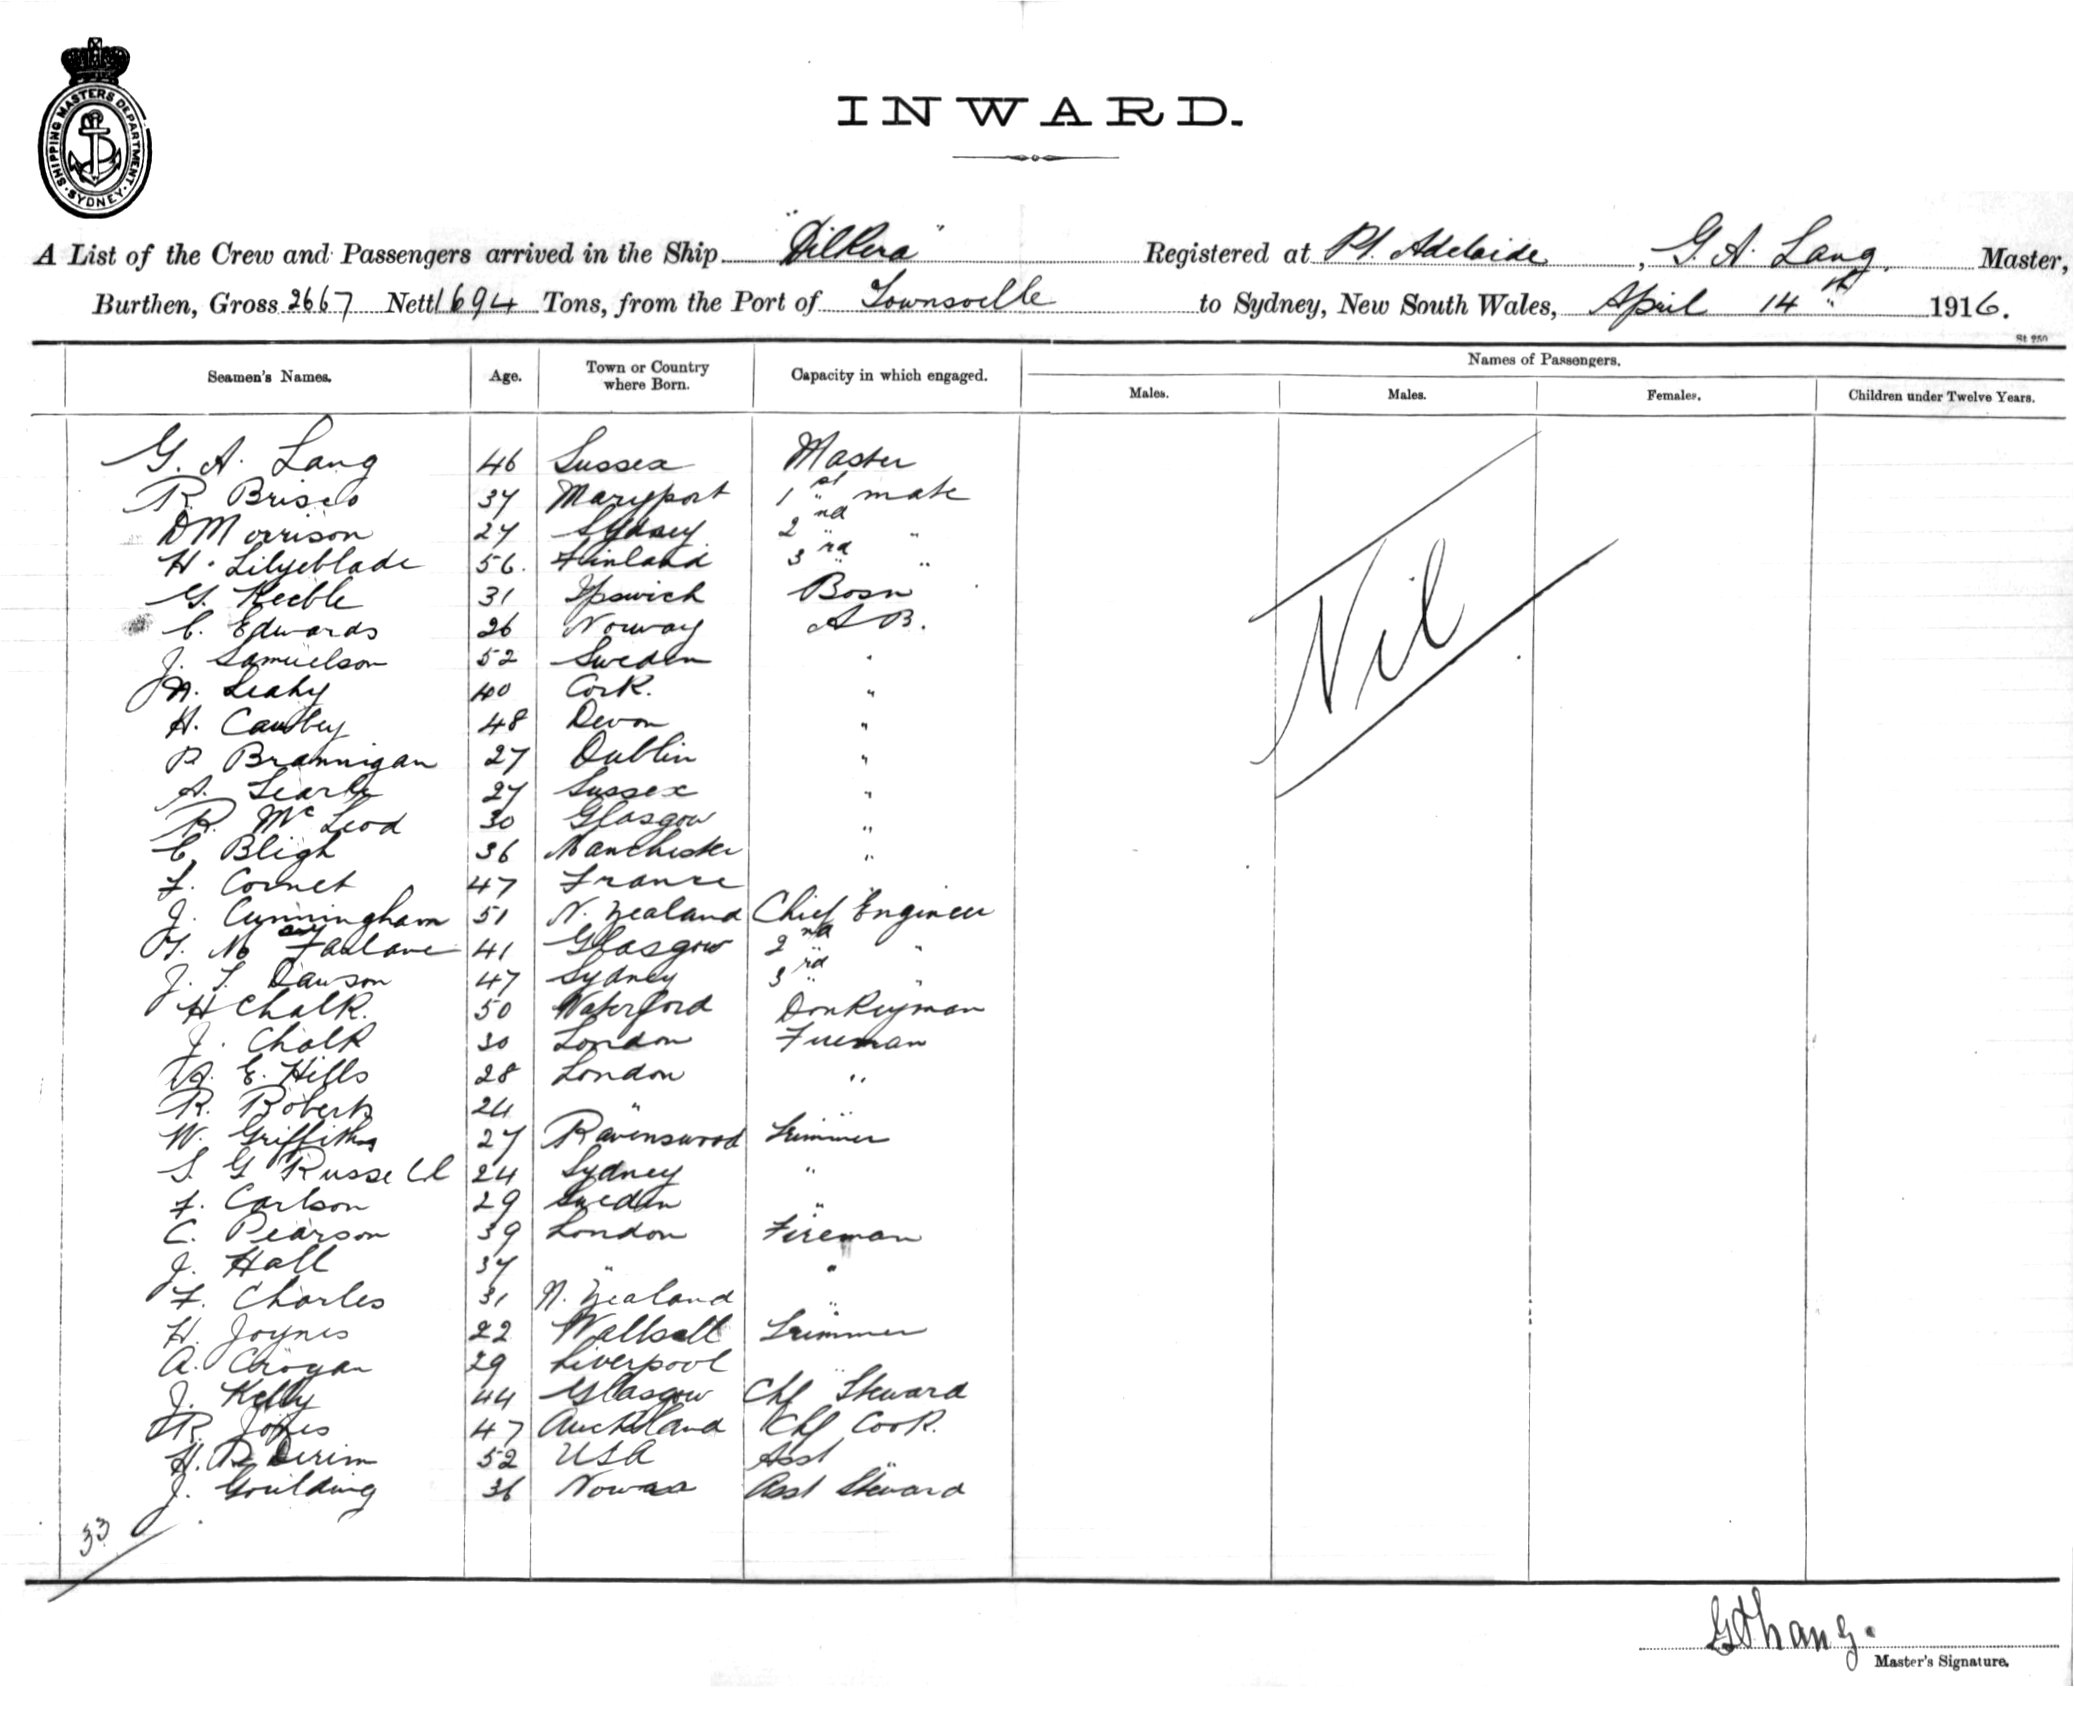 SHIPPING MASTERS DEPARTMENT. SYDNEY
INWARD.
A List of the Crew and Passengers arrived in the Ship "Dilkera" Registered at Pt. Adelaide, G. A. Lang, Master,
Burthen, Gross 2667 Nett 1694 Tons, from the Port of Townsville to Sydney, New South Wales, April 14th 1916.
St 250
Seamen's Names. Age. Town or Country where Born. Capacity in which engaged. Names of Passengers.
Males. Males. Females. Children under Twelve Years.
G. A. Lang 46 Sussex Master
R. Brisco 37 Maryport 1st mate
D Morrison 27 Sydney 2nd "
H. Lilyeblade 56. Finland 3rd "
G. Keeble 31 Ipswich Bosn
C. Edwards 26 Norway A B.
J. Samuelson 52 Sweden "
Leahy 40 Cork. "
H. Cawbey 48 Devon "
P Brannigan 27 Dublin "
A. Searle 27 Sussex "
R. McLeod 30 Glasgow "
C. Bligh 36 Manchester "
F. Cornet 47 France
J. Cunningham 51 N. Zealand Chief Engineer
Farlane 41 Glasgow 2nd "
J. S. Dawson 47 Sydney 3rd "
H Chalk. 50 Waterford Donkeyman
J. Chalk 30 London Fireman
E. Hills 28 London "
R. Roberts 24 " "
W. Griffiths 27 Ravenswood Trimmer
S. G Russell 24 Sydney "
F. Carlson 29 Sweden "
C. Pearson 39 London Fireman
J. Hall 37 " "
F. Charles 31 N. Zealand "
H. Joynes 22 Wallsall Trimmer
A. Crogan 29 Liverpool "
J. Kelly 44 Glasgow Chf Steward
R. Jones 47 Auckland Chf Cook.
H. Derim 52 USA Asst "
J. Goulding 36 Nowra Asst Steward
Nil
33
G A Lang.
Master's Signature.